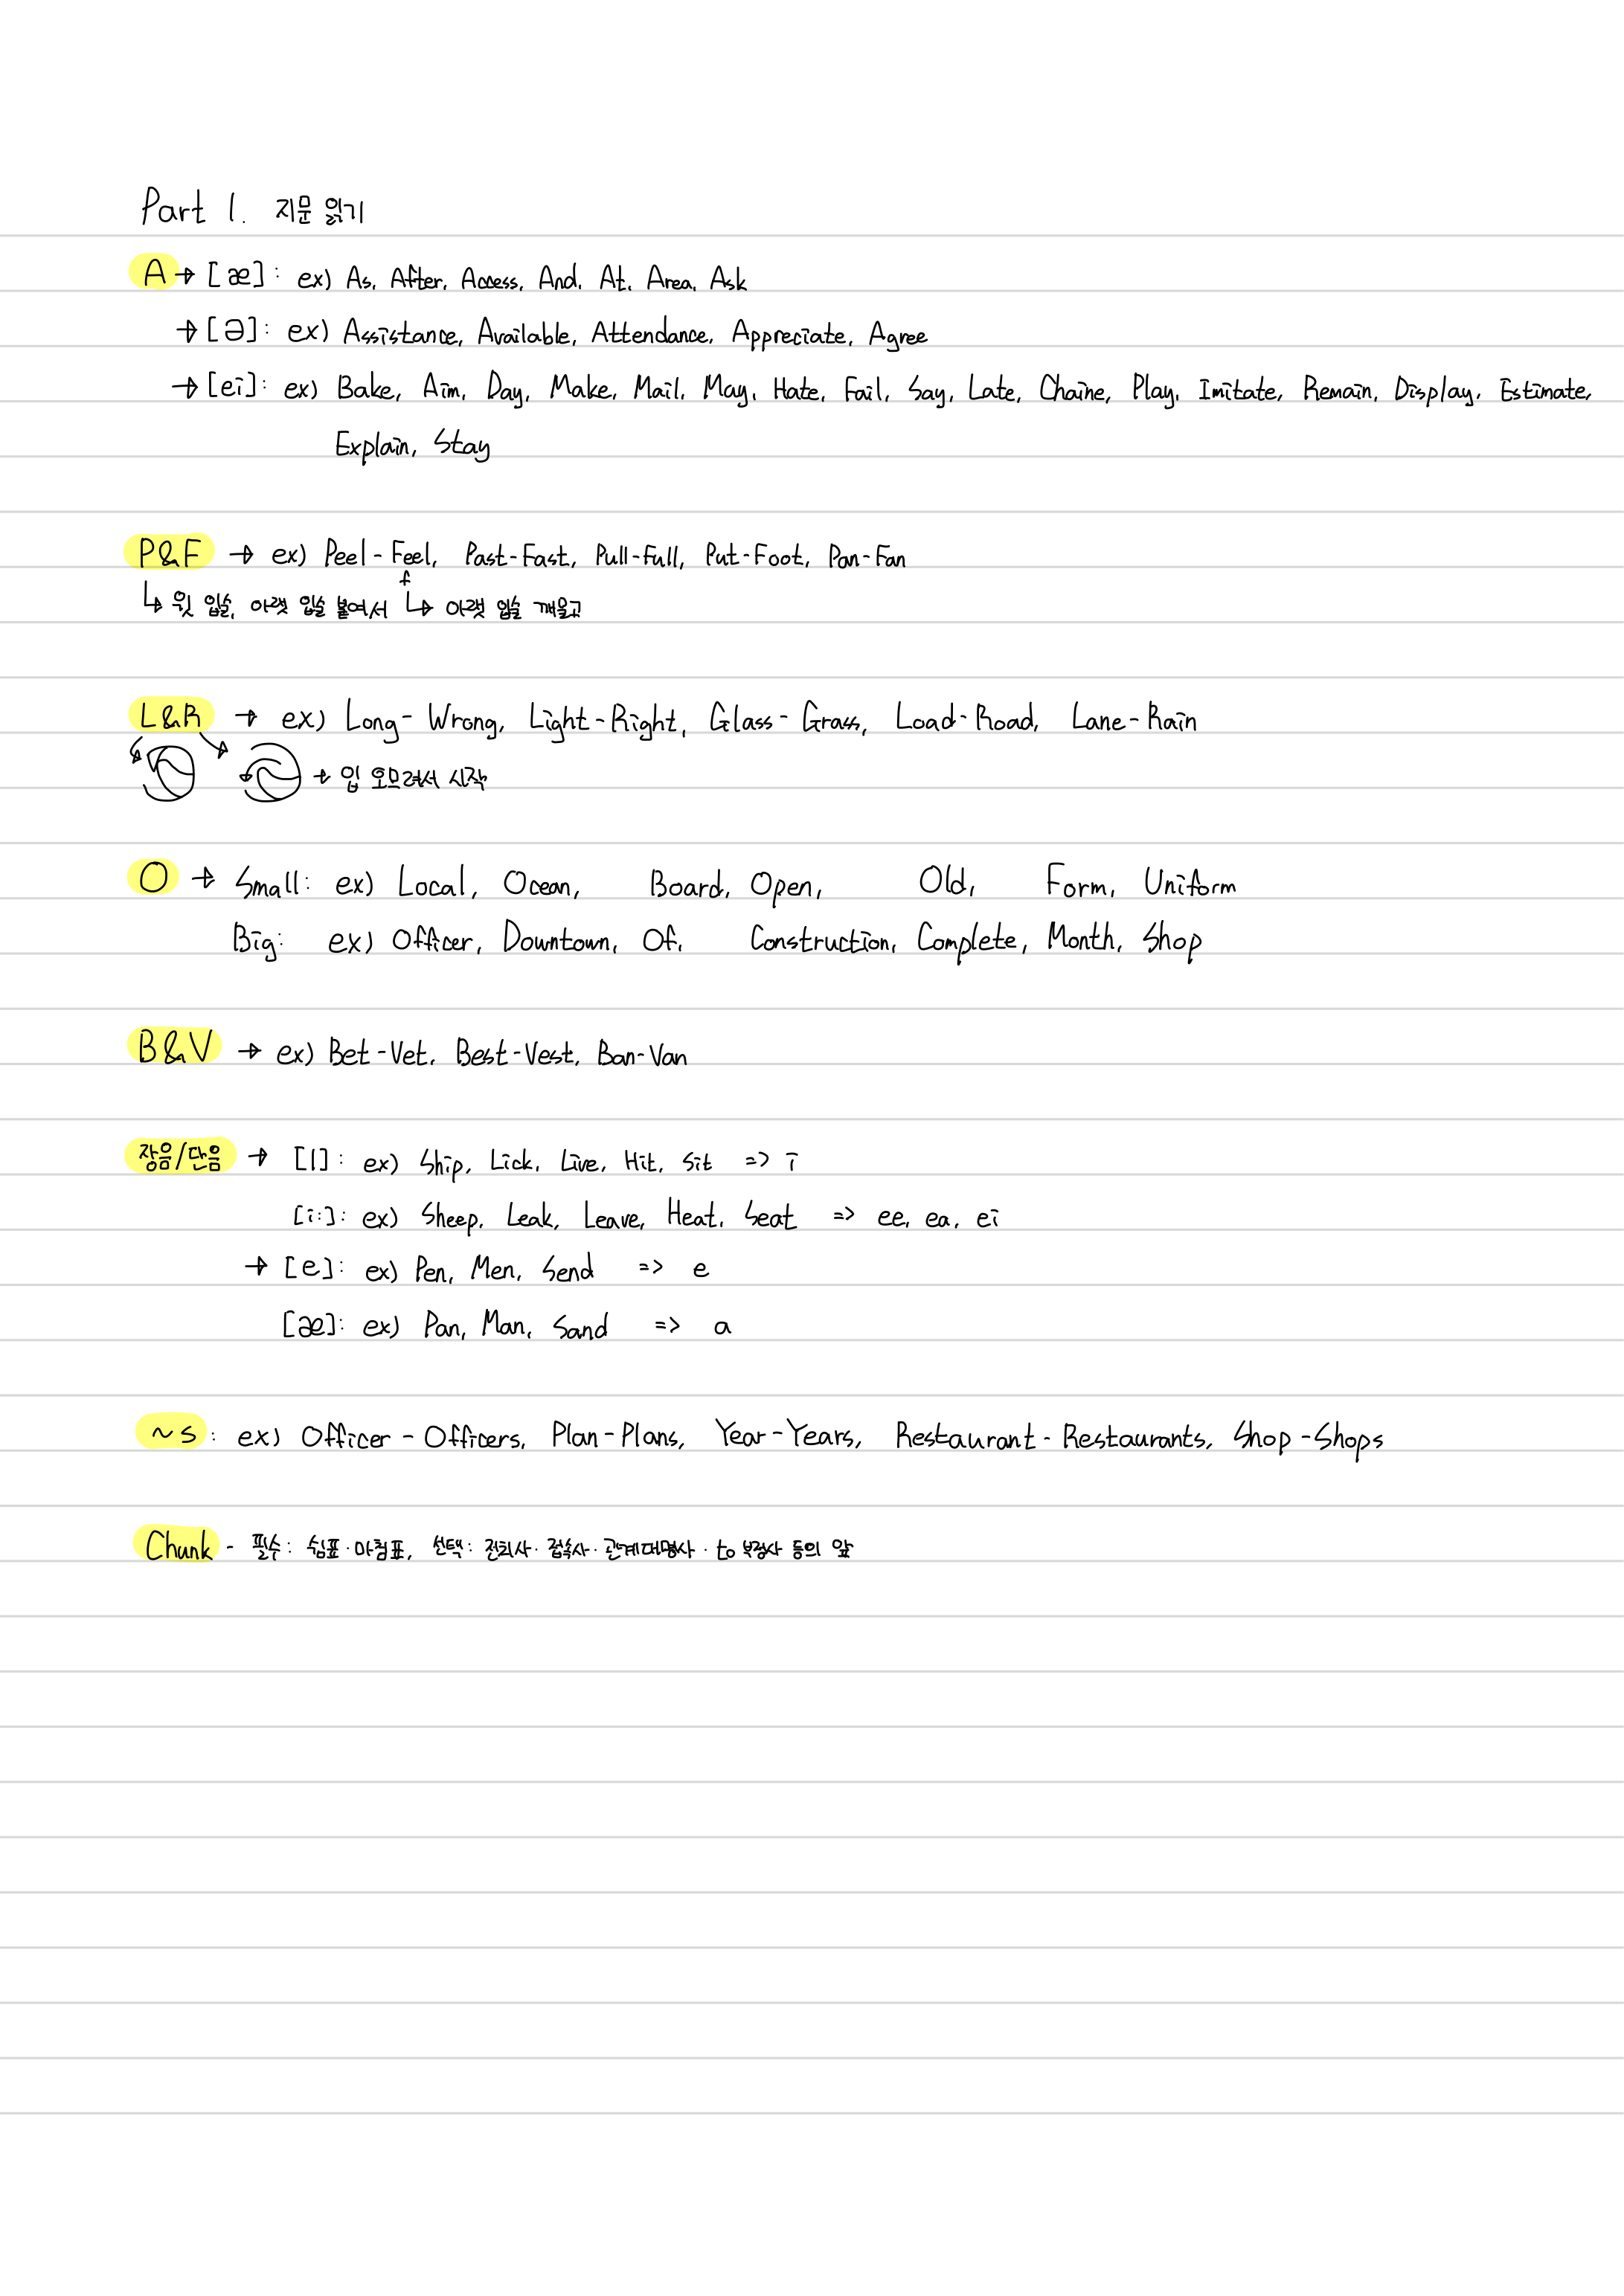 Part 1. 지문 읽기
A → [æ] : ex) As, After, Access, And, At, Area, Ask
→ [ə] : ex) Assistance, Available, Attendance, Appreciate, Agree
→ [ei] : ex) Bake, Aim, Day, Make, Mail, May, Hate, Fail, Say, Late, Chaine, Play, Imitate, Remain, Display, Estimate,
Explain, Stay
P&F → ex) Peel-Feel, Past-Fast, Pull-Full, Put-Foot, Pan-Fan
f
↳ 윗 입술, 아랫 입술 붙여서 ↳ 아랫 입술 깨물고
L&R → ex) Long-Wrong, Light-Right, Glass-Grass, Load-Road, Lane-Rain
→ 입 오므려서 시작
O → Small: ex) Local, Ocean, Board, Open, Old, Form, Uniform
Big: ex) Officer, Downtown, Of, Construction, Complete, Month, Shop
B&V → ex) Bet-Vet, Best-Vest, Ban-Van
장음/단음 → [I] : ex) Ship, Lick, Live, Hit, Sit => i
[i:] : ex) Sheep, Leak, Leave, Heat, Seat => ee, ea, ei
→ [e] : ex) Pen, Men, Send => e
[æ] : ex) Pan, Man, Sand => a
~s : ex) Officer - Officers, Plan-Plans, Year-Years, Restaurant-Restaurants, Shop-Shops
Chunk - 필수: 쉼표·마침표, 선택: 전치사·접속사·관계대명사·to부정사 등의 앞